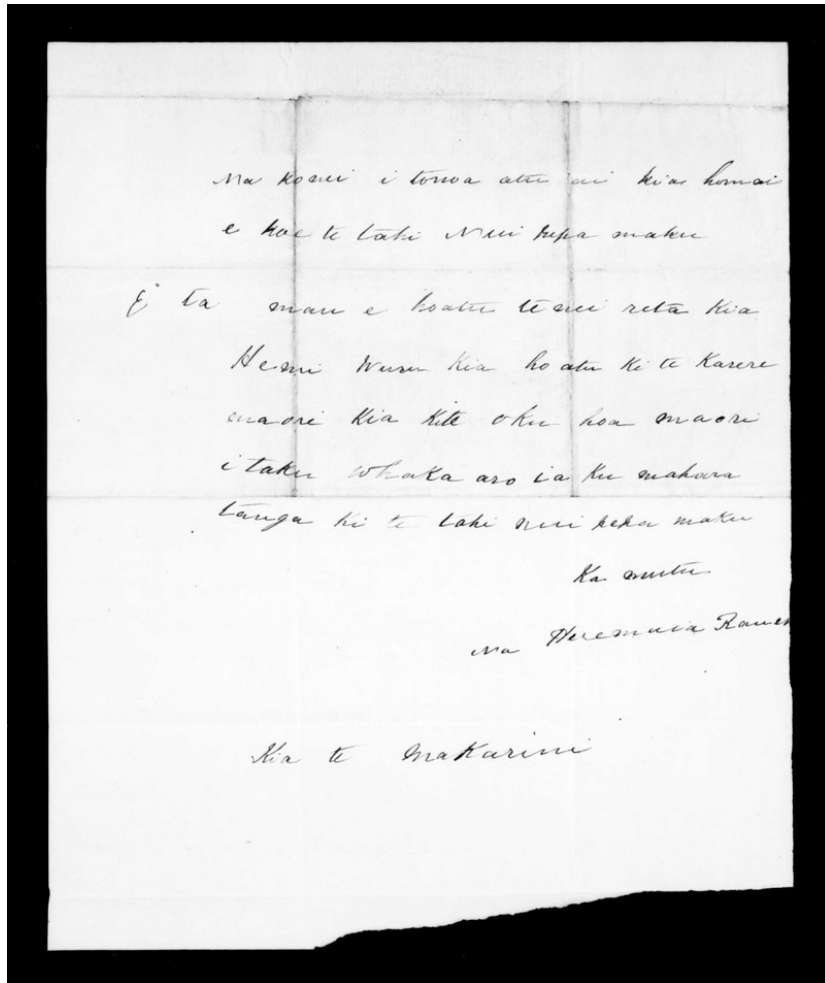 Na konei i tonoa atu ai kia homai
e koe te tahi Nui pepa maku
E ta mau e hoatu tenei reta kia
Hemi Wuru kia ho atu ki te Karere
maori kia kite oku hoa maori
i taku whaka aro ia ku mahara
tanga ki te tahi nui pepa maku
Ka mutu
Na
Kia te Makarini